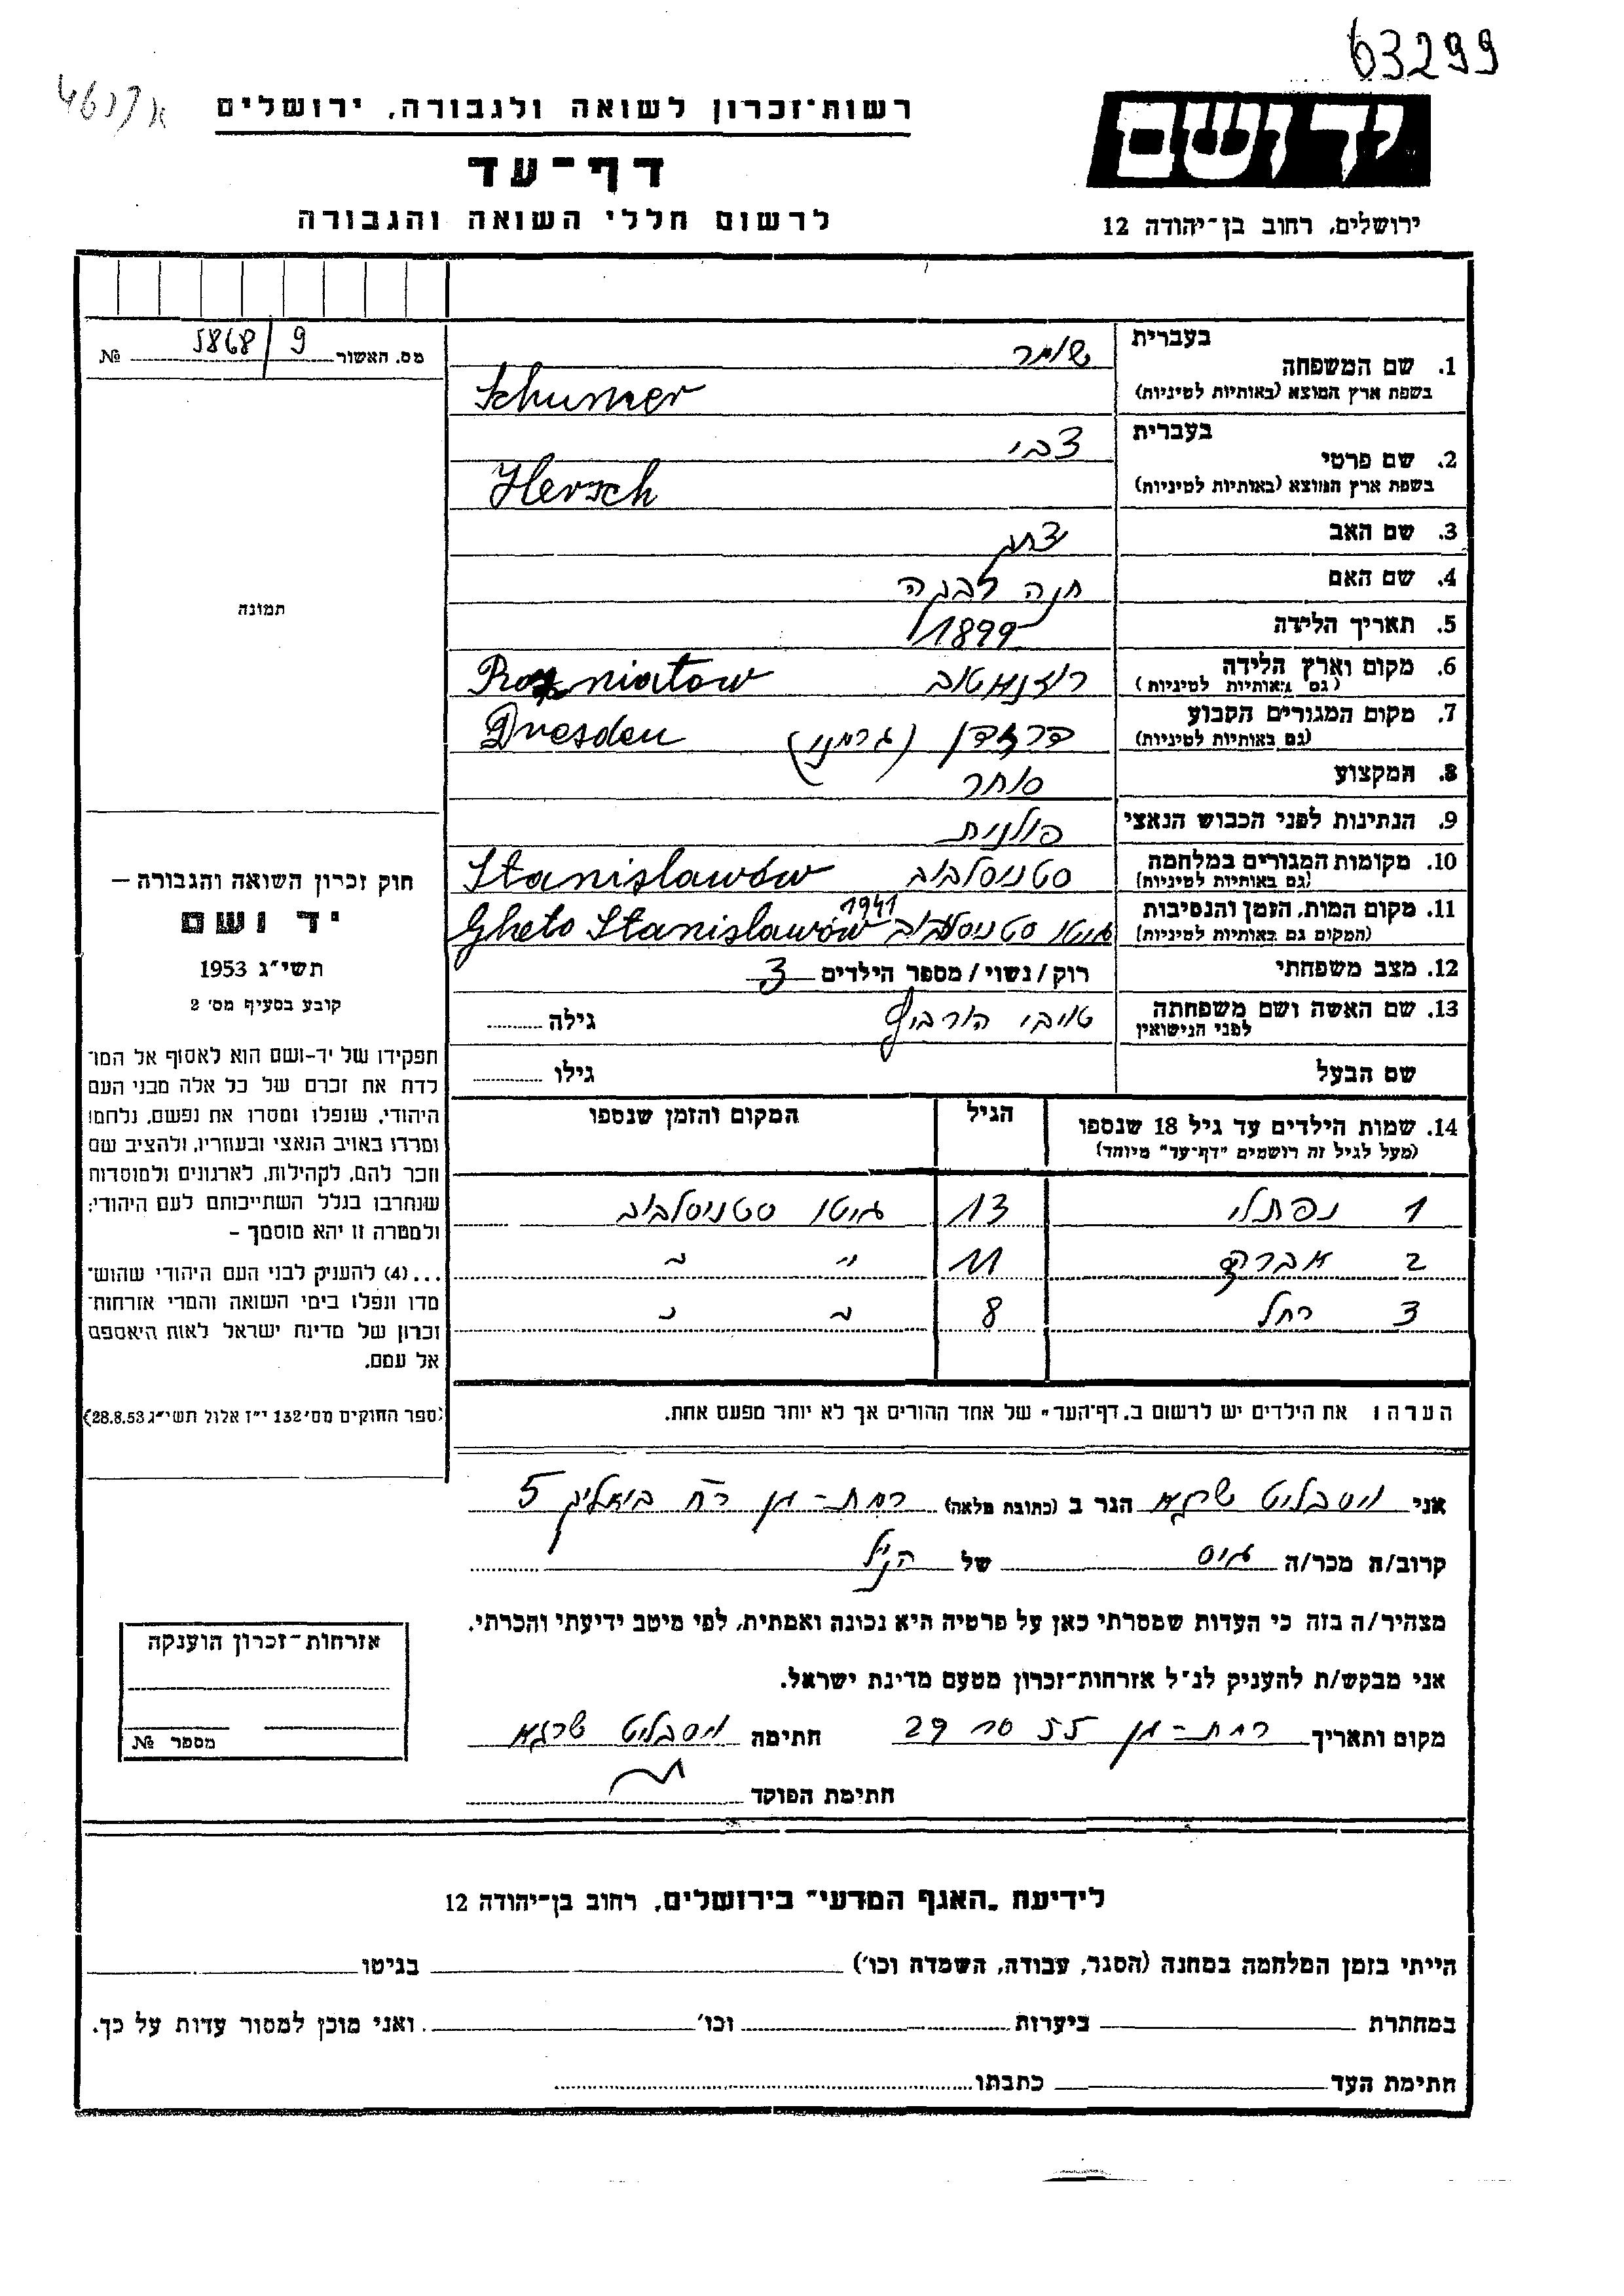 63299
רשות־זכרון לשואה ולגבורה, ירושלים
יד ושם
דף־עד
לרשום חללי השואה והגבורה
ירושלים, רחוב בן־יהודה 12
מס. האשור 5868/9 №
בעברית שומר
1. שם המשפחה
בשפת ארץ המוצא (באותיות לטיניות) Schumer
בעברית צבי
2. שם פרטי
בשפת ארץ המוצא (באותיות לטיניות) Hersch
3. שם האב יצחק
4. שם האם חנה
5. תאריך הלידה 1899
6. מקום וארץ הלידה
(גם באותיות לטיניות) רוזניאטוב Rozniatow
7. מקום המגורים הקבוע
(גם באותיות לטיניות) דרזדן (גרמניה) Dresden
8. המקצוע סוחר
9. הנתינות לפני הכבוש הנאצי פולנית
10. מקומות המגורים במלחמה
(גם באותיות לטיניות) סטניסלבוב Stanislawów
11. מקום המות, הזמן והנסיבות
(המקום גם באותיות לטיניות) גיטו סטניסלבוב 1941 Gheto Stanislawów
12. מצב משפחתי רוק/נשוי/מספר הילדים 3
13. שם האשה ושם משפחתה
לפני הנישואין טויבי הורביץ גילה
שם הבעל גילו
14. שמות הילדים עד גיל 18 שנספו הגיל המקום והזמן שנספו
(מעל לגיל זה רושמים "דף־עד" מיוחד)
1 נפתלי 13 גיטו סטניסלבוב
2 אברהם 11 " "
3 רחל 8 " "
הערה: את הילדים יש לרשום ב„דף־העד" של אחד ההורים אך לא יותר מפעם אחת.
תמונה
חוק זכרון השואה והגבורה —
יד ושם
תשי"ג 1953
קובע בסעיף מס' 2
תפקידו של יד-ושם הוא לאסוף אל המו־
לדת את זכרם של כל אלה מבני העם
היהודי, שנפלו ומסרו את נפשם, נלחמו
ומרדו באויב הנאצי ובעוזריו, ולהציב שם
וזכר להם, לקהילות, לארגונים ולמוסדות
שנחרבו בגלל השתייכותם לעם היהודי;
ולמטרה זו יהא מוסמך –
...(4) להעניק לבני העם היהודי שהוש־
מדו ונפלו בימי השואה והמרי אזרחות־
זכרון של מדינת ישראל לאות היאספם
אל עמם.
(ספר החוקים מס' 132 י"ז אלול תשי"ג 28.8.53)
אני וייסבליט שרגא הגר ב (כתובת מלאה) רמת-גן רח ביאליק 5
קרוב/ה מכר/ה גיס של הנ"ל
מצהיר/ה בזה כי העדות שמסרתי כאן על פרטיה היא נכונה ואמתית, לפי מיטב ידיעתי והכרתי.
אני מבקש/ת להעניק לנ"ל אזרחות־זכרון מטעם מדינת ישראל.
מקום ותאריך רמת-גן 29 10 55 חתימה וייסבליט שרגא
חתימת הפוקד
אזרחות־זכרון הוענקה
מספר №
לידיעת „האגף המדעי" בירושלים, רחוב בן־יהודה 12
הייתי בזמן המלחמה במחנה (הסגר, עבודה, השמדה וכו') בגיטו
במחתרת ביערות וכו' ואני מוכן למסור עדות על כך.
חתימת העד כתבתו